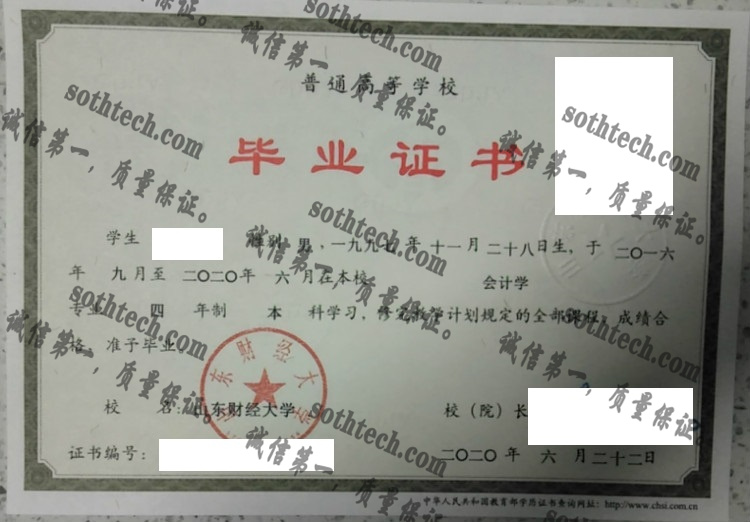 普通高等学校
毕业证书
学生 性别 男，一九九七年 十一月 二十八日生，于 二〇一六
年 九月至 二〇二〇年 六月在本校 会计学
专业 四 年制 本 科学习，修完教学计划规定的全部课程，成绩合
格，准予毕业。
山东财经大学
校 名：山东财经大学 校（院）长
证书编号： 二〇二〇年 六月二十二日
中华人民共和国教育部学历证书查询网址：http://www.chsi.com.cn
sothtech.com
诚信第一，质量保证。
sothtech.com
诚信第一，质量保证。
sothtech.com
诚信第一，质量保证。
sothtech.com
诚信第一，质量保证。
sothtech.com
诚信第一，质量保证。
sothtech.com
诚信第一，质量保证。
sothtech.com
诚信第一，质量保证。
sothtech.com